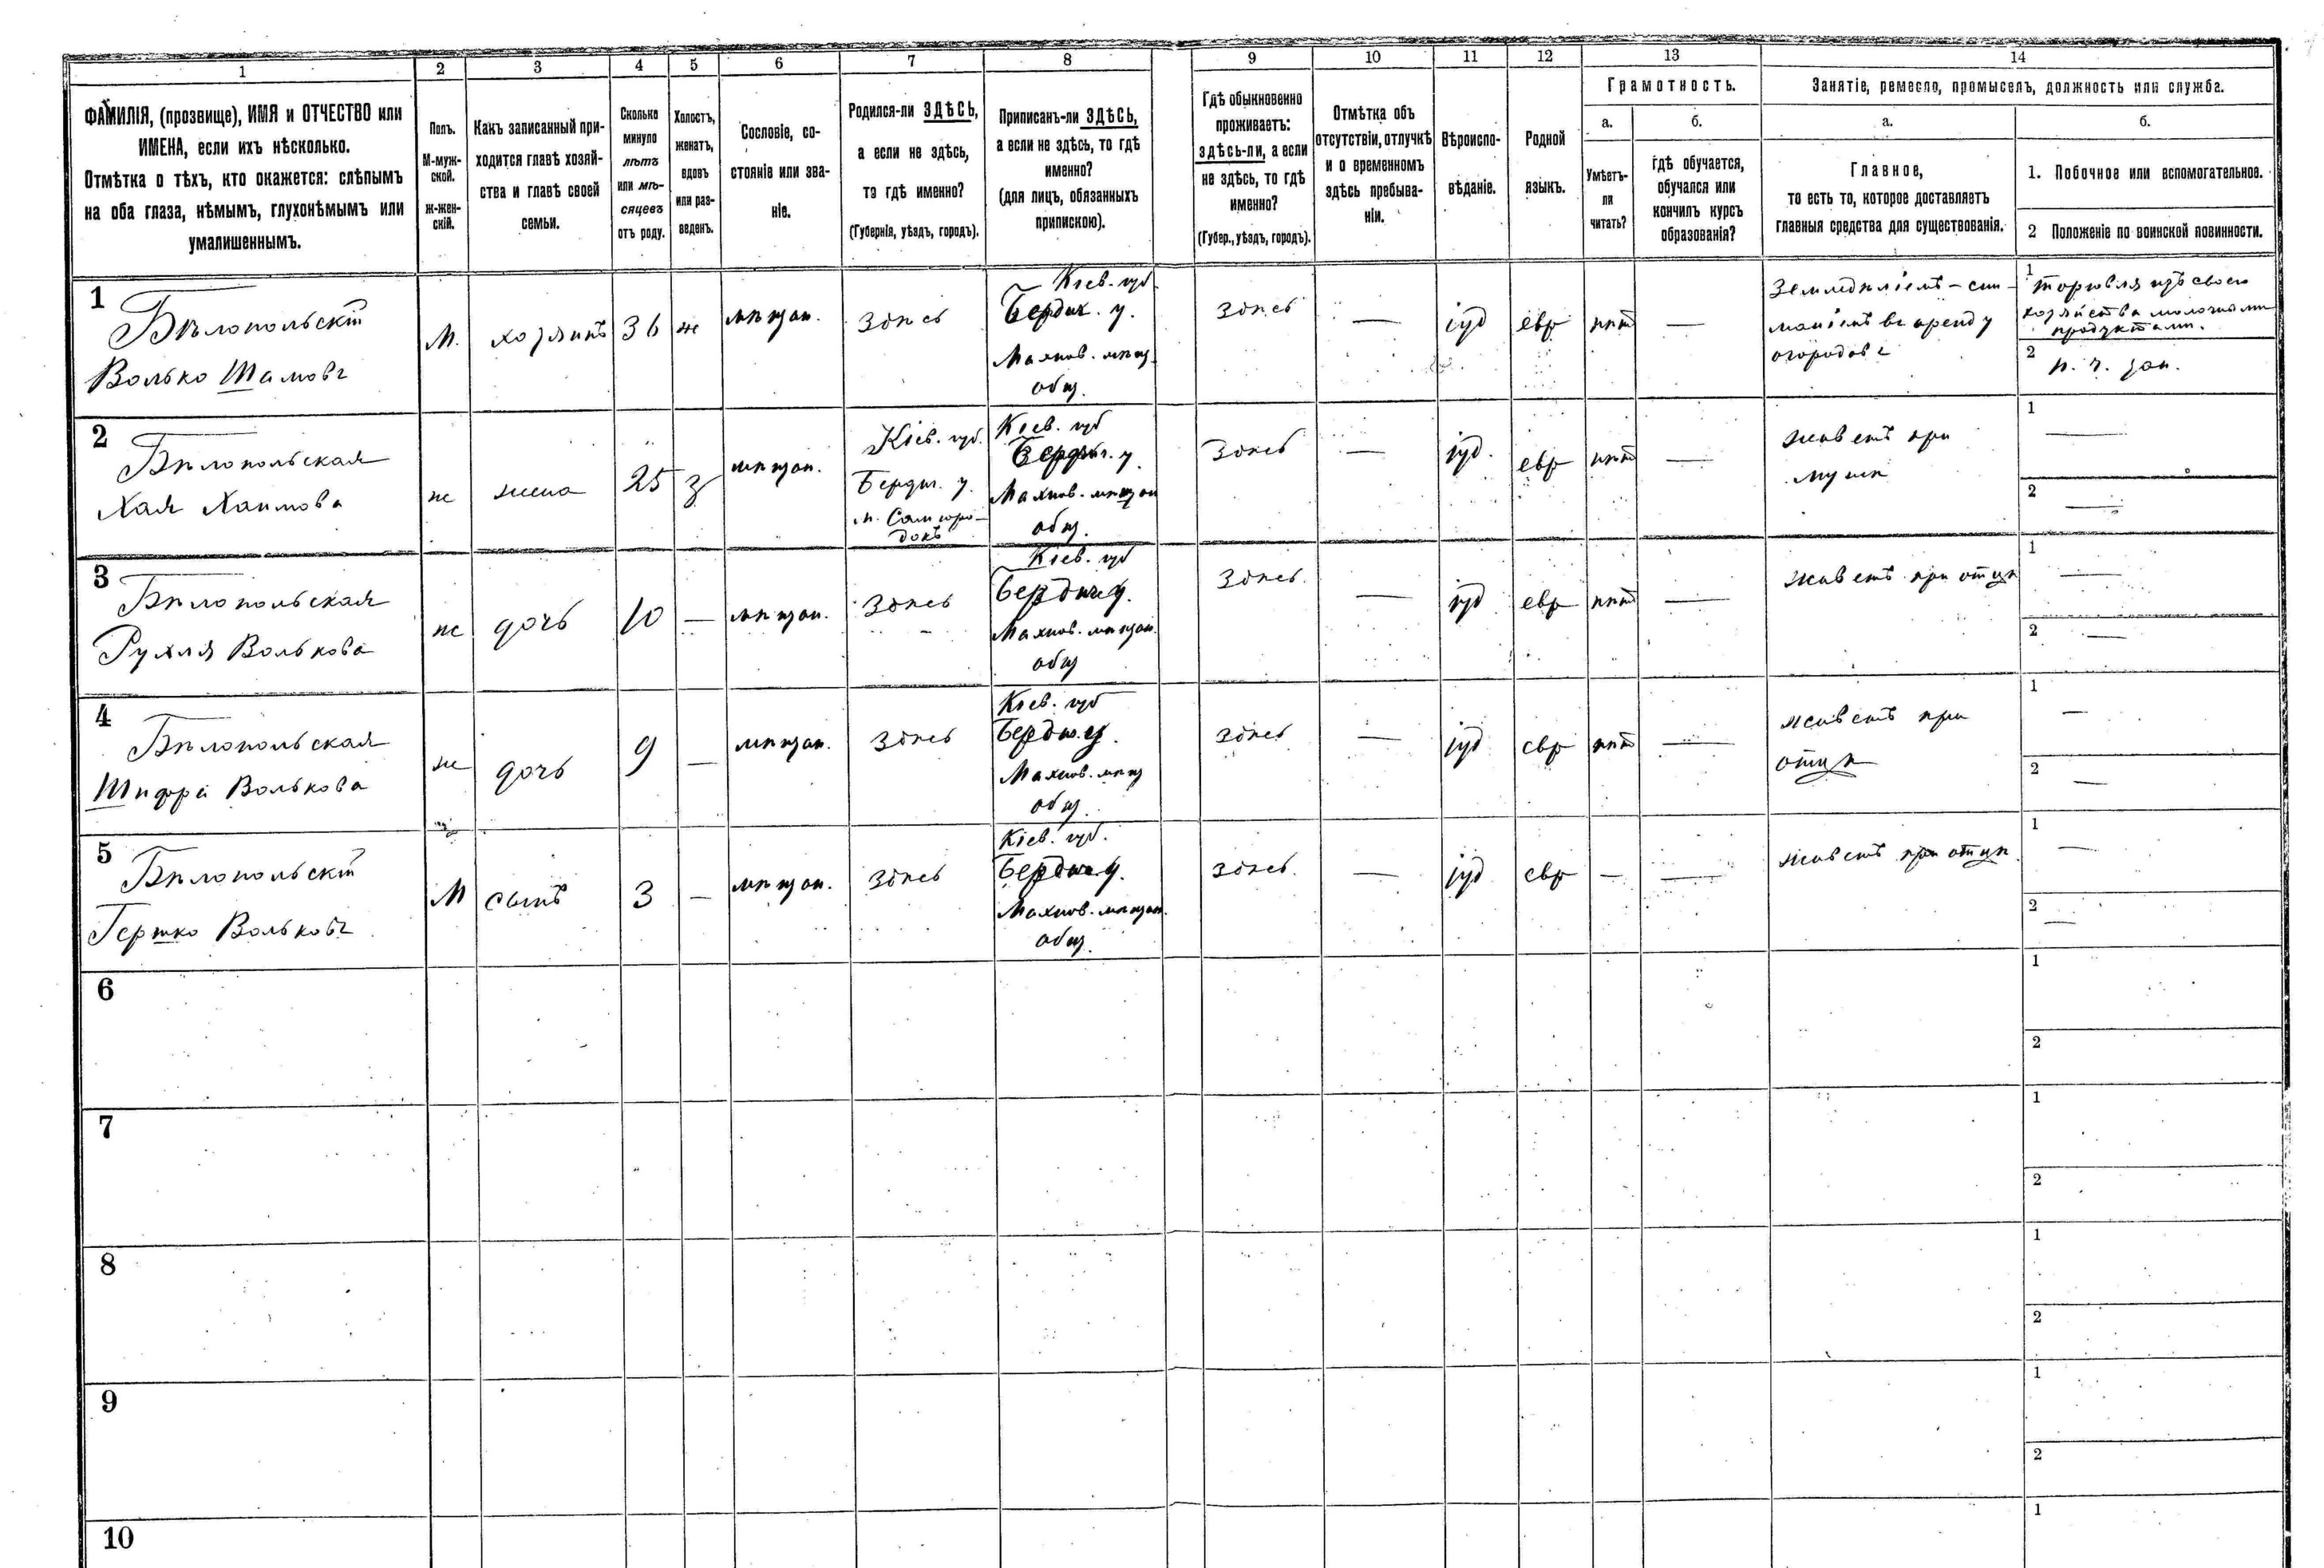 1 2 3 4 5 6 7 8 9 10 11 12 13 14
ФАМИЛІЯ, (прозвище), ИМЯ и ОТЧЕСТВО или
ИМЕНА, если ихъ нѣсколько.
Отмѣтка о тѣхъ, кто окажется: слѣпымъ
на оба глаза, нѣмымъ, глухонѣмымъ или
умалишеннымъ.
Полъ.
М-муж-
ской.
ж-жен-
скій.
Какъ записанный при-
ходится главѣ хозяй-
ства и главѣ своей
семьи.
Сколько
минуло
лѣтъ
или мѣ-
сяцевъ
отъ роду.
Холостъ,
женатъ,
вдовъ
или раз-
веденъ.
Сословіе, со-
стояніе или зва-
ніе.
Родился-ли ЗДѢСЬ,
а если не здѣсь,
то гдѣ именно?
(Губернія, уѣздъ, городъ).
Приписанъ-ли ЗДѢСЬ,
а если не здѣсь, то гдѣ
именно?
(для лицъ, обязанныхъ
припискою).
Гдѣ обыкновенно
проживаетъ:
здѣсь-ли, а если
не здѣсь, то гдѣ
именно?
(Губер., уѣздъ, городъ).
Отмѣтка объ
отсутствіи, отлучкѣ
и о временномъ
здѣсь пребыва-
ніи.
Вѣроиспо-
вѣданіе.
Родной
языкъ.
Грамотность.
а.
Умѣетъ-
ли
читать?
б.
гдѣ обучается,
обучался или
кончилъ курсъ
образованія?
Занятіе, ремесло, промыселъ, должность или служба.
а.
Главное,
то есть то, которое доставляетъ
главныя средства для существованія.
б.
1. Побочное или вспомогательное.
2 Положеніе по воинской повинности.
1
Бѣлопольскій
Волько Шамовъ
М.
хозяинъ
36
ж
мѣщан.
здѣсь
Кіев. губ
Бердич. у.
Махнов. мѣщ.
общ.
здѣсь
—
іуд
евр
нѣт
—
Земледѣліемъ - сни-
маніемъ въ аренду
огородовъ
1
торговля изъ своего
хозяйства молочными
продуктами.
2
н. ч. зап.
2
Бѣлопольская
Хая Хаимова
ж
жена
25
з
мѣщан.
Кіев. губ.
Бердич. у.
м. Самгоро-
докъ
Кіев. губ
Бердич. у.
Махнов. мѣщан
общ.
здѣсь
—
іуд.
евр
нѣт
—
живетъ при
мужѣ
1
—
2
—
3
Бѣлопольская
Рухля Волькова
ж
дочь
10
—
мѣщан.
здѣсь
Кіев. губ
Бердич у.
Махнов. мѣщан.
общ
здѣсь.
—
іуд
евр
нѣт
—
живетъ при отцѣ
1
—
2
—
4
Бѣлопольская
Шифра Волькова
ж
дочь
9
—
мѣщан.
здѣсь
Кіев. губ
Бердич у.
Махнов. мѣщ
общ.
здѣсь
—
іуд
евр
нѣт
—
живетъ при
отцѣ
1
—
2
—
5
Бѣлопольскій
Гершко Вольковъ
М
сынъ
3
—
мѣщан.
здѣсь
Кіев. губ.
Бердич у.
Махнов. мѣщан.
общ.
здѣсь.
—
іуд
евр
—
—
живетъ при отцѣ.
1
—
2
—
6
1
2
7
1
2
8
1
2
9
1
2
10
1